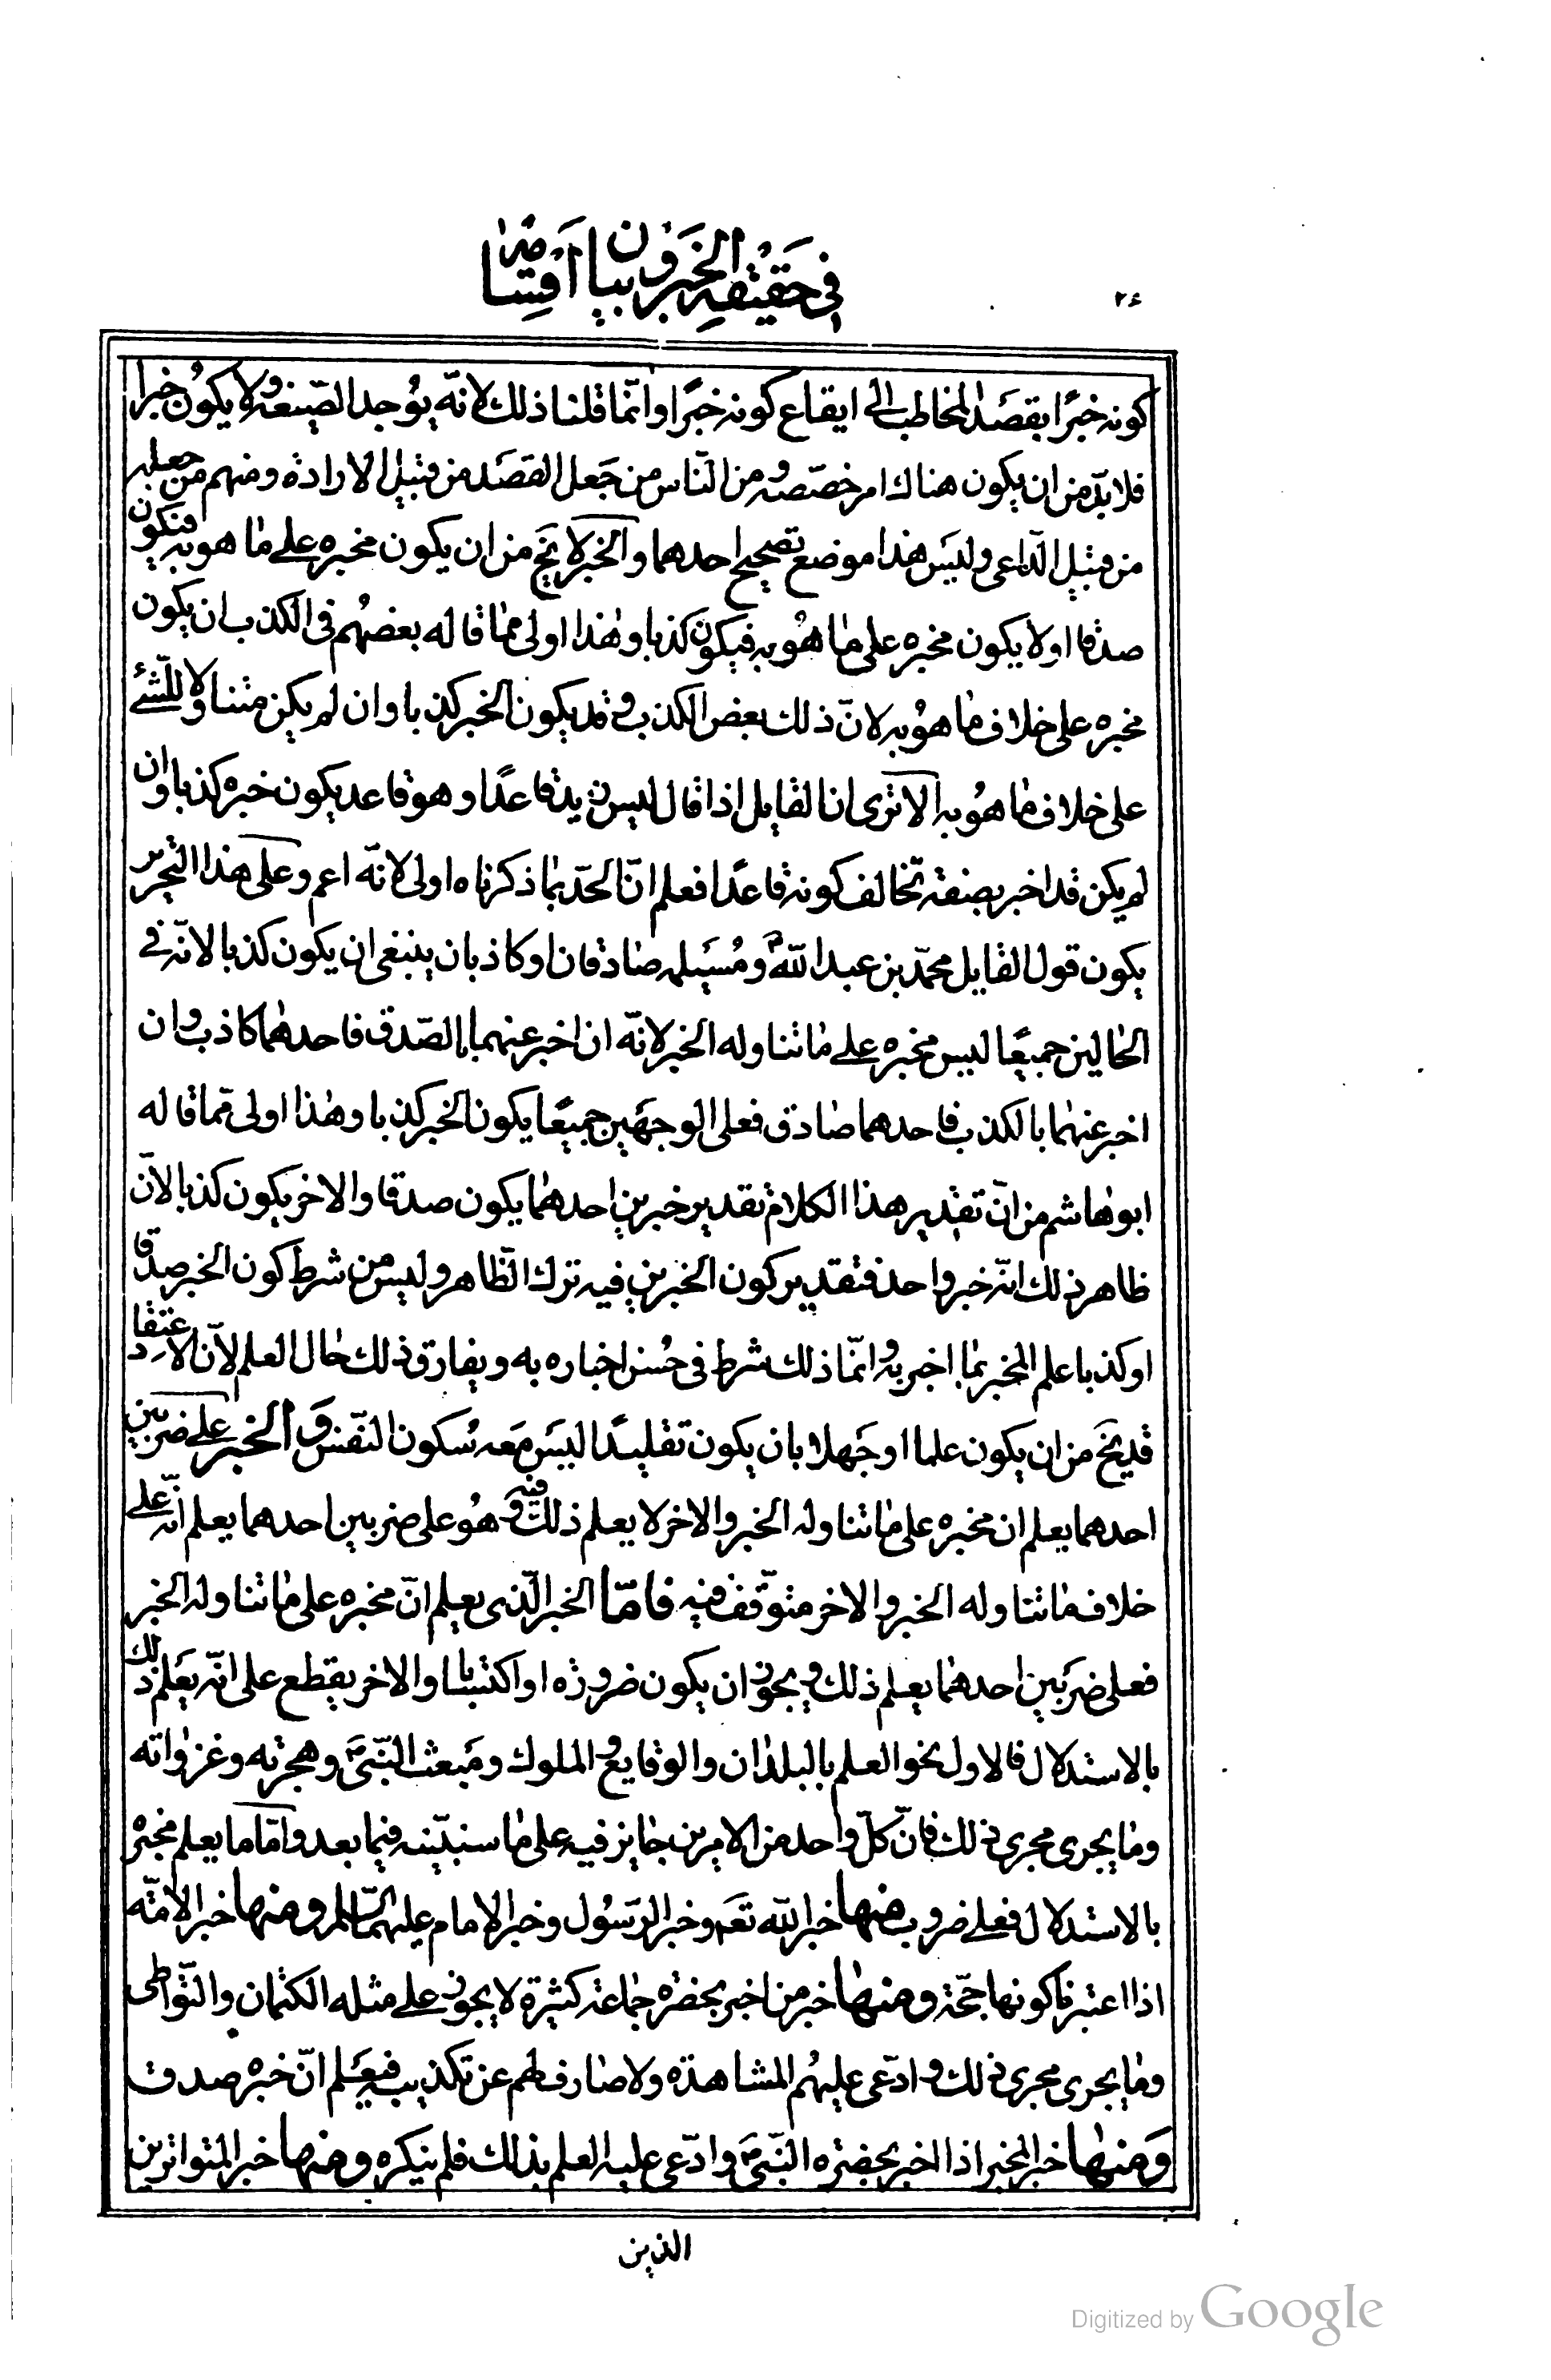 في حقيقة الخبر وبيان اقسامه
٢٤
كونه خبرًا بقصد المخاطب الى ايقاع كونه خبرًا وانّما قلنا ذلك لانّه يوجد الصّيغة ولا يكون خبرا
فلا بدّ من ان يكون هناك امر خصّصه ومن النّاس من جعل القصد من قبيل الارادة ومنهم من جعله
من قبيل الدّاعى وليس هذا موضع تصحيح احدهما والخبر لا يخ من ان يكون مخبره على ما هو به فيكون
صدقا او لا يكون مخبره على ما هو به فيكون كذبا وهذا اولى ممّا قاله بعضهم فى الكذب بان يكون
مخبره على خلاف ما هو به لانّ ذلك بعض الكذب وقد يكون الخبر كذبا وان لم يكن متناولا للشّئ
على خلاف ما هو به الا ترى ان القايل اذا قال ليس زيد قاعدًا وهو قاعد يكون خبره كذبا وان
لم يكن قد اخبر بصفة تخالف كونه قاعدًا فعلم انّ الحدّ بما ذكرناه اولى لانّه اعم وعلى هذا التحرير
يكون قول القايل محمّد بن عبد اللّه ص ومسيلمة صادقان او كاذبان ينبغى ان يكون كذبا لانّه فى
الحالين جميعًا ليس مخبره على ما تناوله الخبر لانّه ان اخبر عنهما بالصّدق فاحدهما كاذب وان
اخبر عنهما بالكذب فاحدهما صادق فعلى الوجهين جميعًا يكون الخبر كذبا وهذا اولى ممّا قاله
ابو هاشم من انّ تقدير هذا الكلام تقدير خبرين احدهما يكون صدقا والاخر يكون كذبا لانّ
ظاهر ذلك انّه خبر واحد فتقدير كون الخبرين فيه ترك الظّاهر وليس من شرط كون الخبر صدقا
او كذبا علم المخبر بما اخبر به وانّما ذلك شرط فى حسن اخباره به ويفارق ذلك حال العلم لانّ الاعتقاد
قد يخ من ان يكون علما او جهلا بان يكون تقليدًا ليس معه سكون النّفس والخبر على ضربين
احدهما يعلم ان مخبره على ما تناوله الخبر والاخر لا يعلم ذلك فيه وهو على ضربين احدهما يعلم انّه على
خلاف ما تناوله الخبر والاخر متوقّف فيه فامّا الخبر الّذى يعلم انّ مخبره على ما تناوله الخبر
فعلى ضربين احدهما يعلم ذلك ويجوز ان يكون ضرورة او اكتسابا والاخر يقطع على انّه يعلم ذلك
بالاستدلال فالاول نحو العلم بالبلدان والوقايع والملوك ومبعث النّبىّ ص وهجرته وغزواته
وما يجرى مجرى ذلك فانّ كلّ واحد من الامرين جايز فيه على ما سنبيّنه فيما بعد وامّا ما يعلم مخبره
بالاستدلال فعلى ضروب منها خبر اللّه تعم وخبر الرّسول وخبر الامام عليهما السّلم ومنها خبر الامّة
اذا اعتبرنا كونها حجّة ومنها خبر من اخبر بحضرة جماعة كثيرة لا يجوز على مثله الكتمان والتّواطى
وما يجرى مجرى ذلك وادّعى عليهم المشاهدة ولا صارف لهم عن تكذيبه فيعلم انّ خبره صدق
ومنها خبر المخبر اذا اخبر بحضرة النّبىّ ص وادّعى عليه العلم بذلك فلم ينكره ومنها خبر المتواترين
الذين
Digitized by Google